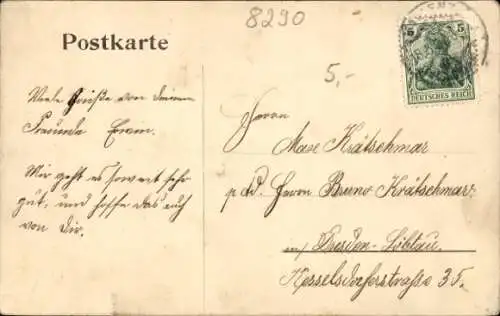 8290
Postkarte
5,-
5 5
DEUTSCHES REICH
Viele Grüße von deinem
Freunde Erwin.
Mir geht es soweit sehr
gut, und hoffe das auch
von Dir.
Herrn
Max Krätschmar
p. Ad. Herrn Bruno Krätschmar
in Dresden-Löbtau.
Kesselsdorferstraße 35.